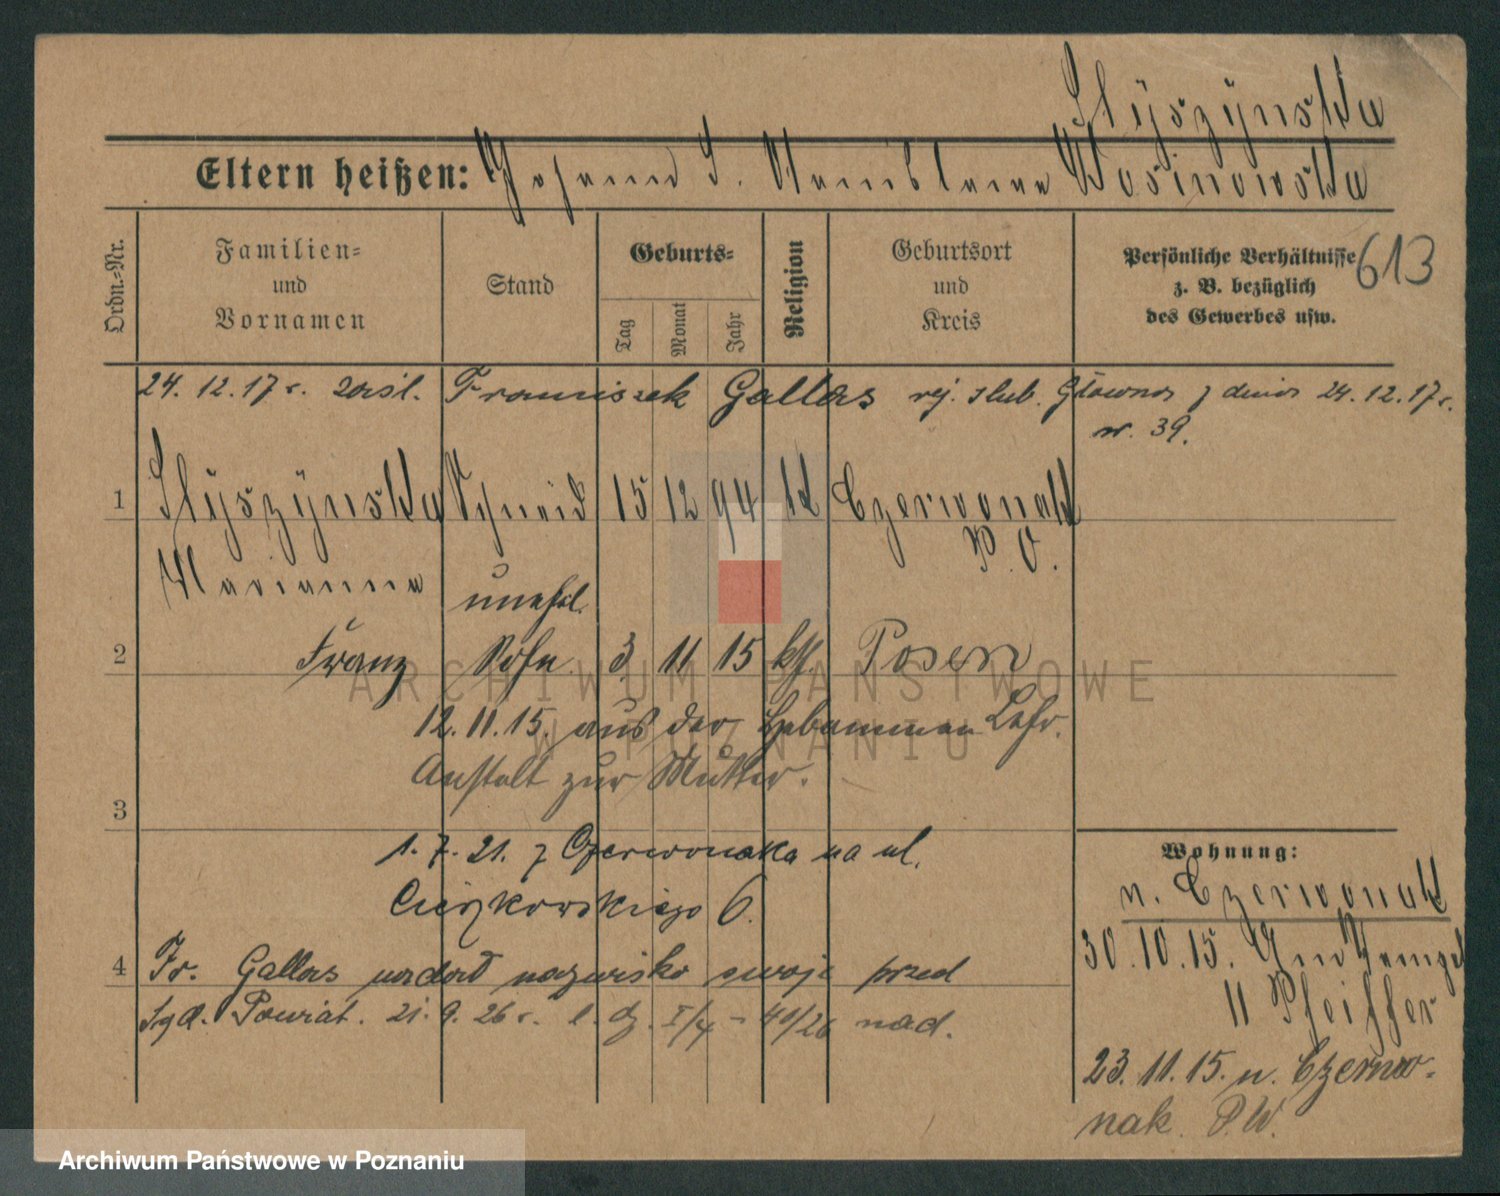 Slyszynska
Eltern heißen: Johann S. Stanislawa Wosinowska
613
Ordn.-Nr.
Familien-
und
Vornamen
Stand
Geburts-
Tag
Monat
Jahr
Religion
Geburtsort
und
Kreis
Persönliche Verhältnisse
z. B. bezüglich
des Gewerbes usw.
24. 12. 17 r. zaśl. Franciszek Gallas rej. slub. Główna z dnia 24. 12. 17 r.
nr. 39.
1 Slyszynska Schneid 15 12 94 kt Czerwonak
P. O.
Marianna
unehl.
2 Franz Sohn 3 11 15 kt Posen
12. 11. 15. aus der Hebammen Lehr.
Anstalt zur Mutter.
3
1. 7. 21. z Czerwonaka na ul.
Cieszkowskiego 6.
4 Fr. Gallas nadał nazwisko swoje przed
Sąd. Powiat. 21. 9. 26 r. l. dz. I/4 - 40/26 nad.
Wohnung:
n. Czerwonak
30. 10. 15.
11 Pfeiffer
23. 11. 15. n. Czerwo-
nak. P. W.
ARCHIWUM PAŃSTWOWE
W POZNANIU
Archiwum Państwowe w Poznaniu